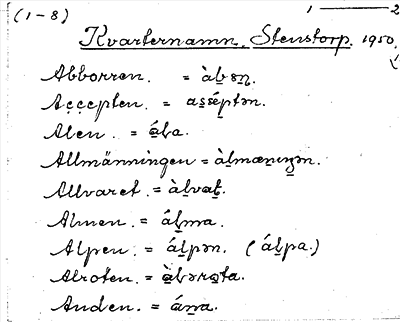 (1-8) 1 — 2
Kvarternamn. Stenstorp. 1950.
Abborren. = àb̲ən̲.
Accepten. = as̲s̲éptən.
Alen. = á̲l̲a.
Allmänningen = àl̲mæn̲ıŋ̲ən.
Allvaret. = àl̲vat̲.
Almen. = ál̲ma.
Alpen. = ál̲pən. (ál̲pa.)
Alroten. = à̲l̲ərə̲ta.
Anden. = án̲a.